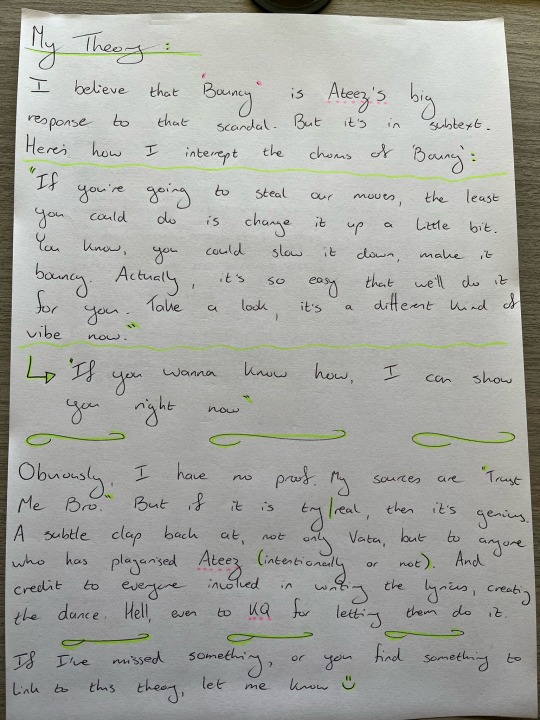 My Theory :
I believe that "Bouncy" is Ateez's big
response to that scandal. But it's in subtext.
Here's how I interrept the chorus of 'Bouncy':
"If you're going to steal our moves, the least
you could do is change it up a little bit.
You know, you could slow it down, make it
bouncy. Actually, it's so easy that we'll do it
for you. Take a look, it's a different kind of
vibe now."
↳ "If you wanna know how, I can show
you right now"
Obviously, I have no proof. My sources are "Trust
Me Bro." But if it is try/real, then it's genius.
A subtle clap back at, not only Vata, but to anyone
who has plagarised Ateez (intentionally or not). And
credit to everyone involved in writing the lyrics, creating
the dance. Hell, even to KQ for letting them do it.
If I've missed something, or you find something to
link to this theory, let me know :)